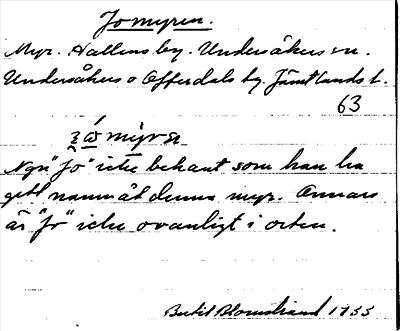 Jomyren.
Myr. Hallens by. Undersåkers sn.
Undersåkers o Offerdals tg. Jämtlands l.
63
Ngn "Jo" icke bekant som kan ha
gett namn åt denna myr. Annars
är "Jo" icke ovanligt i orten.
Bertil Blomstrand 1935